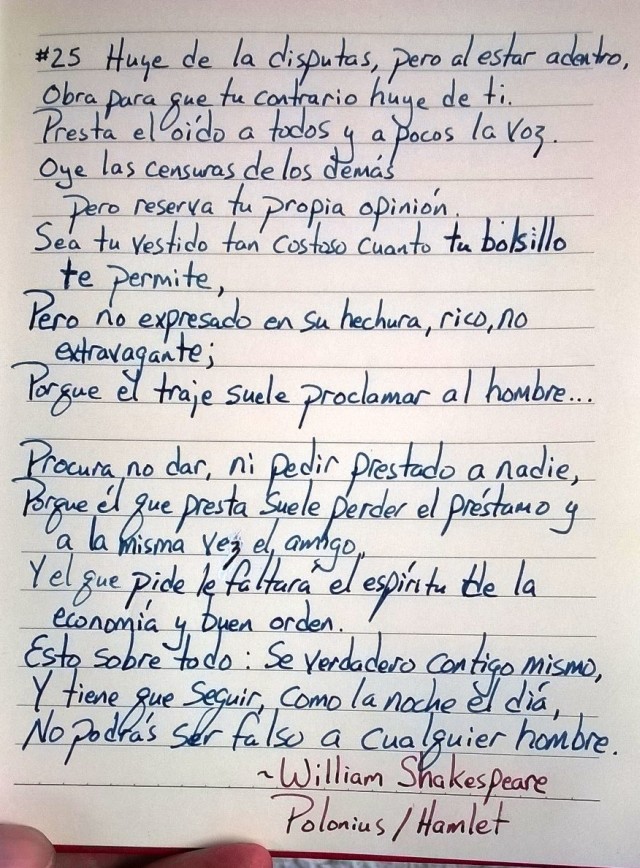 #25 Huye de la disputas, pero al estar adentro,
Obra para que tu contrario huye de ti.
Presta el oído a todos y a pocos la voz.
Oye las censuras de los demás
Pero reserva tu propia opinión.
Sea tu vestido tan costoso cuanto tu bolsillo
te permite,
Pero no expresado en su hechura, rico, no
extravagante;
Porque el traje suele proclamar al hombre...
Procura no dar, ni pedir prestado a nadie,
Porque él que presta suele perder el préstamo y
a la misma vez el amigo,
Y el que pide le faltará el espíritu de la
economía y buen orden.
Esto sobre todo: Se verdadero contigo mismo,
Y tiene que seguir, como la noche el día,
No podrás ser falso a cualquier hombre.
~William Shakespeare
Polonius / Hamlet